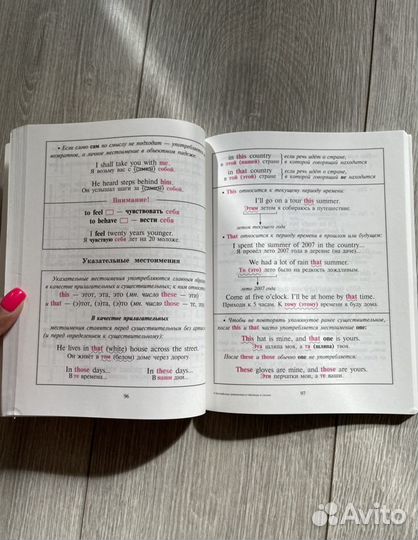 • Если слово сам по смыслу не подходит — употребляйте не
возвратное, а личное местоимение в объектном падеже:
I shall take you with me.
Я возьму вас с (самой) собой.
He heard steps behind him.
Он услышал шаги за (самим) собой.
Внимание!
to feel — чувствовать себя
to behave — вести себя
I feel twenty years younger.
Я чувствую себя лет на 20 моложе.
Указательные местоимения
Указательные местоимения употребляются главным образом
в качестве прилагательных и существительных:
this — этот, эта, это (мн. число these — эти)
• that — (э)тот, (э)та, (э)то (мн. число those — те, эти)
• В качестве прилагательных
местоимения ставятся перед существительным без артикля
(и перед определением к существительному):
He lives in that (white) house across the street.
Он живёт в том (белом) доме через дорогу.
In those days...
В те времена...
In these days...
В наши дни...
96
in this country
в этой (нашей) стране
если речь идёт о стране,
в которой говорящий находится
in that country
в той (этой) стране
если речь идёт о стране,
в которой говорящий не находится
• This относится к текущему периоду времени:
I'll go on a tour this summer.
Этим летом я собираюсь в путешествие.
летом текущего года
• That относится к периоду времени в прошлом или будущем:
I spent the summer of 2007 in the country...
Я провёл лето 2007 года в деревне (на даче)...
We had a lot of rain that summer.
То (это) лето было на редкость дождливым.
лето 2007 года
Come at five o'clock. I'll be at home by that time.
Приходи к 5 часам. К тому (этому) времени я буду дома.
• Чтобы не повторять упомянутое ранее существительное,
после this и that часто употребляется местоимение one:
This hat is mine, and that one is yours.
Эта шляпа моя, а та (шляпа) твоя.
После these и those обычно one не употребляется:
These gloves are mine, and those are yours.
Эти перчатки мои, а те ваши.
97
Avito